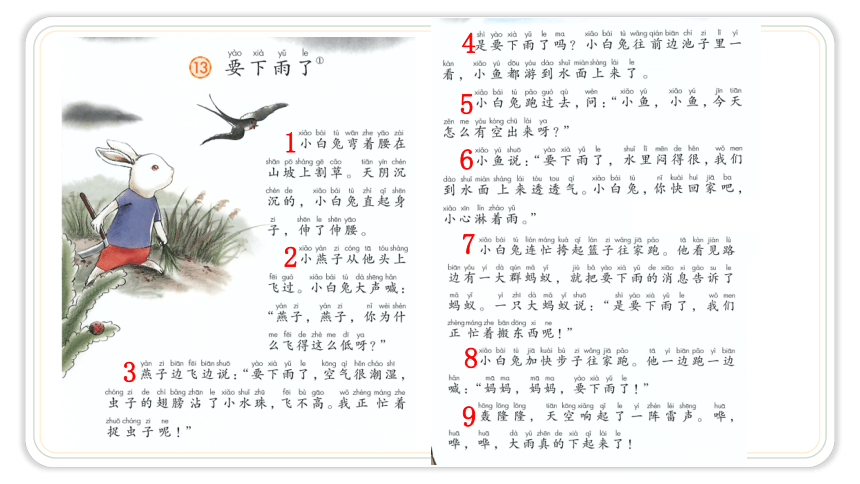 yào xià yǔ le
⑬ 要下雨了①
xiǎo bái tù wān zhe yāo zài
1小白兔弯着腰在
shān pō shàng gē cǎo tiān yīn chén
山坡上割草。天阴沉
chén de xiǎo bái tù zhí qǐ shēn
沉的，小白兔直起身
zi shēn le shēn yāo
子，伸了伸腰。
xiǎo yàn zi cóng tā tóu shàng
2小燕子从他头上
fēi guò xiǎo bái tù dà shēng hǎn
飞过。小白兔大声喊：
yàn zi yàn zi nǐ wèi shén
“燕子，燕子，你为什
me fēi de zhè me dī ya
么飞得这么低呀？”
yàn zi biān fēi biān shuō yào xià yǔ le kōng qì hěn cháo shī
3燕子边飞边说：“要下雨了，空气很潮湿，
chóng zi de chì bǎng zhān le xiǎo shuǐ zhū fēi bù gāo wǒ zhèng máng zhe
虫子的翅膀沾了小水珠，飞不高。我正忙着
zhuō chóng zi ne
捉虫子呢！”
shì yào xià yǔ le ma xiǎo bái tù wǎng qián biān chí zi lǐ yí
4是要下雨了吗？小白兔往前边池子里一
kàn xiǎo yú dōu yóu dào shuǐ miàn shàng lái le
看，小鱼都游到水面上来了。
xiǎo bái tù pǎo guò qù wèn xiǎo yú xiǎo yú jīn tiān
5小白兔跑过去，问：“小鱼，小鱼，今天
zěn me yǒu kòng chū lái ya
怎么有空出来呀？”
xiǎo yú shuō yào xià yǔ le shuǐ lǐ mēn de hěn wǒ men
6小鱼说：“要下雨了，水里闷得很，我们
dào shuǐ miàn shàng lái tòu tou qì xiǎo bái tù nǐ kuài huí jiā ba
到水面上来透透气。小白兔，你快回家吧，
xiǎo xīn lín zháo yǔ
小心淋着雨。”
xiǎo bái tù lián máng kuà qǐ lán zi wǎng jiā pǎo tā kàn jiàn lù
7小白兔连忙挎起篮子往家跑。他看见路
biān yǒu yí dà qún mǎ yǐ jiù bǎ yào xià yǔ de xiāo xi gào su le
边有一大群蚂蚁，就把要下雨的消息告诉了
mǎ yǐ yì zhī dà mǎ yǐ shuō shì yào xià yǔ le wǒ men
蚂蚁。一只大蚂蚁说：“是要下雨了，我们
zhèng máng zhe bān dōng xi ne
正忙着搬东西呢！”
xiǎo bái tù jiā kuài bù zi wǎng jiā pǎo tā yì biān pǎo yì biān
8小白兔加快步子往家跑。他一边跑一边
hǎn mā ma mā ma yào xià yǔ le
喊：“妈妈，妈妈，要下雨了！”
hōng lōng lōng tiān kōng xiǎng qǐ le yí zhèn léi shēng huā
9轰隆隆，天空响起了一阵雷声。哗，
huā huā dà yǔ zhēn de xià qǐ lái le
哗，哗，大雨真的下起来了！